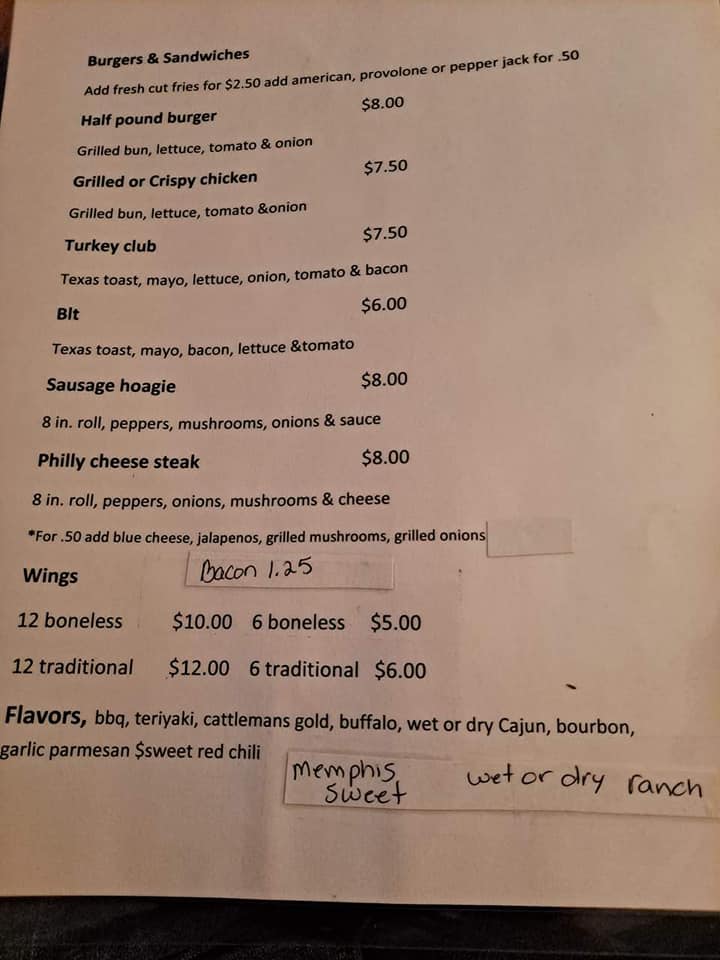 Burgers & Sandwiches
Add fresh cut fries for $2.50 add american, provolone or pepper jack for .50
Half pound burger $8.00
Grilled bun, lettuce, tomato & onion
Grilled or Crispy chicken $7.50
Grilled bun, lettuce, tomato &onion
Turkey club $7.50
Texas toast, mayo, lettuce, onion, tomato & bacon
Blt $6.00
Texas toast, mayo, bacon, lettuce &tomato
Sausage hoagie $8.00
8 in. roll, peppers, mushrooms, onions & sauce
Philly cheese steak $8.00
8 in. roll, peppers, onions, mushrooms & cheese
*For .50 add blue cheese, jalapenos, grilled mushrooms, grilled onions
Bacon 1.25
Wings
12 boneless $10.00 6 boneless $5.00
12 traditional $12.00 6 traditional $6.00
Flavors, bbq, teriyaki, cattlemans gold, buffalo, wet or dry Cajun, bourbon,
garlic parmesan $sweet red chili
memphis wet or dry ranch
Sweet